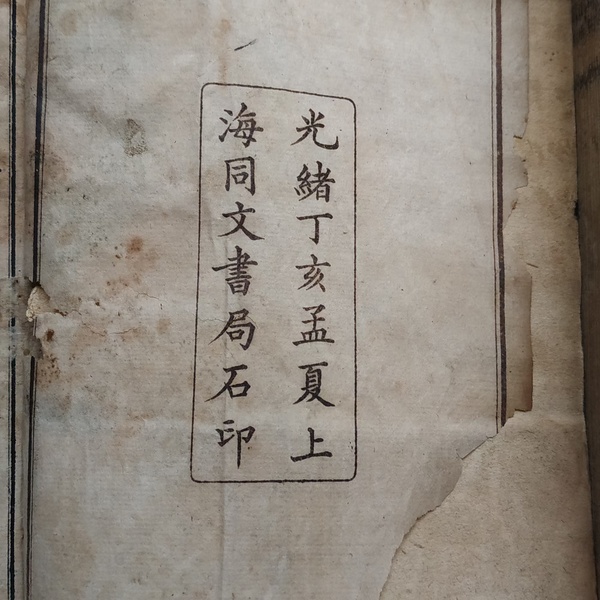 光緒丁亥孟夏上
海同文書局石印